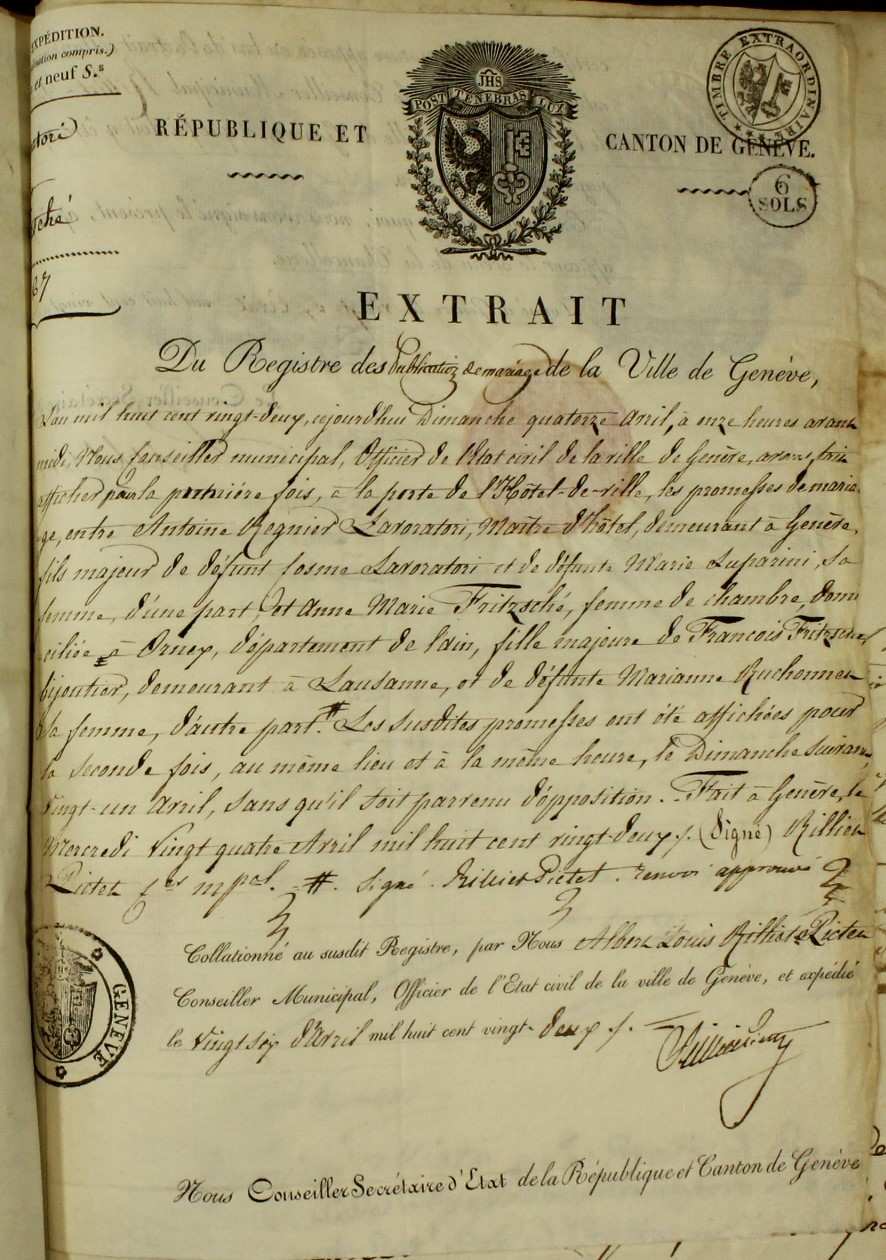 EXPÉDITION.
et neuf S.s
JHS
POST TENEBRAS LUX
TIMBRE EXTRAORDINAIRE
RÉPUBLIQUE ET CANTON DE GENÈVE.
6
SOLS
EXTRAIT
Du Registre des Publications de mariage de la Ville de Genève,
L'an mil huit cent vingt-deux, cejourdhui Dimanche quatorze avril, à onze heures avant
midi, Nous Conseiller municipal, Officier de l'Etat civil de la ville de Genève, avons fait
afficher pour la première fois, à la porte de l'Hôtel-de-ville, les promesses de maria-
ge, entre Antoine Regnier Lavoratori, Maître d'hôtel, demeurant à Genève,
fils majeur de défunt Cosme Lavoratori et de défunte Marie Luparini, sa
femme, d'une part, et Anne Marie Fritzsché, femme de chambre, domi-
ciliée à Ornex, département de l'ain, fille majeure de François Fritzsché
bijoutier, demeurant à Lausanne, et de défunte Marianne Ruchonnet
sa femme, d'autre part. # Les susdites promesses ont été affichées pour
la seconde fois, au même lieu et à la même heure, le Dimanche suivant
vingt-un avril, sans qu'il soit parvenu d'opposition. - Fait à Genève, le
Mercredi vingt quatre Avril mil huit cent vingt-deux /. (Signé) Rilliet
Pictet Cer mpal. - #. Signé. Rilliet Pictet. renvoi approuvé
Collationné au susdit Registre, par Nous Albert Louis Rilliet Pictet
Conseiller Municipal, Officier de l'Etat civil de la ville de Genève, et expédié
le vingt six d'Avril mil huit cent vingt-deux /.
Rilliet Pictet
GENÈVE
Nous Conseiller Secrétaire d'Etat de la République et Canton de Genève